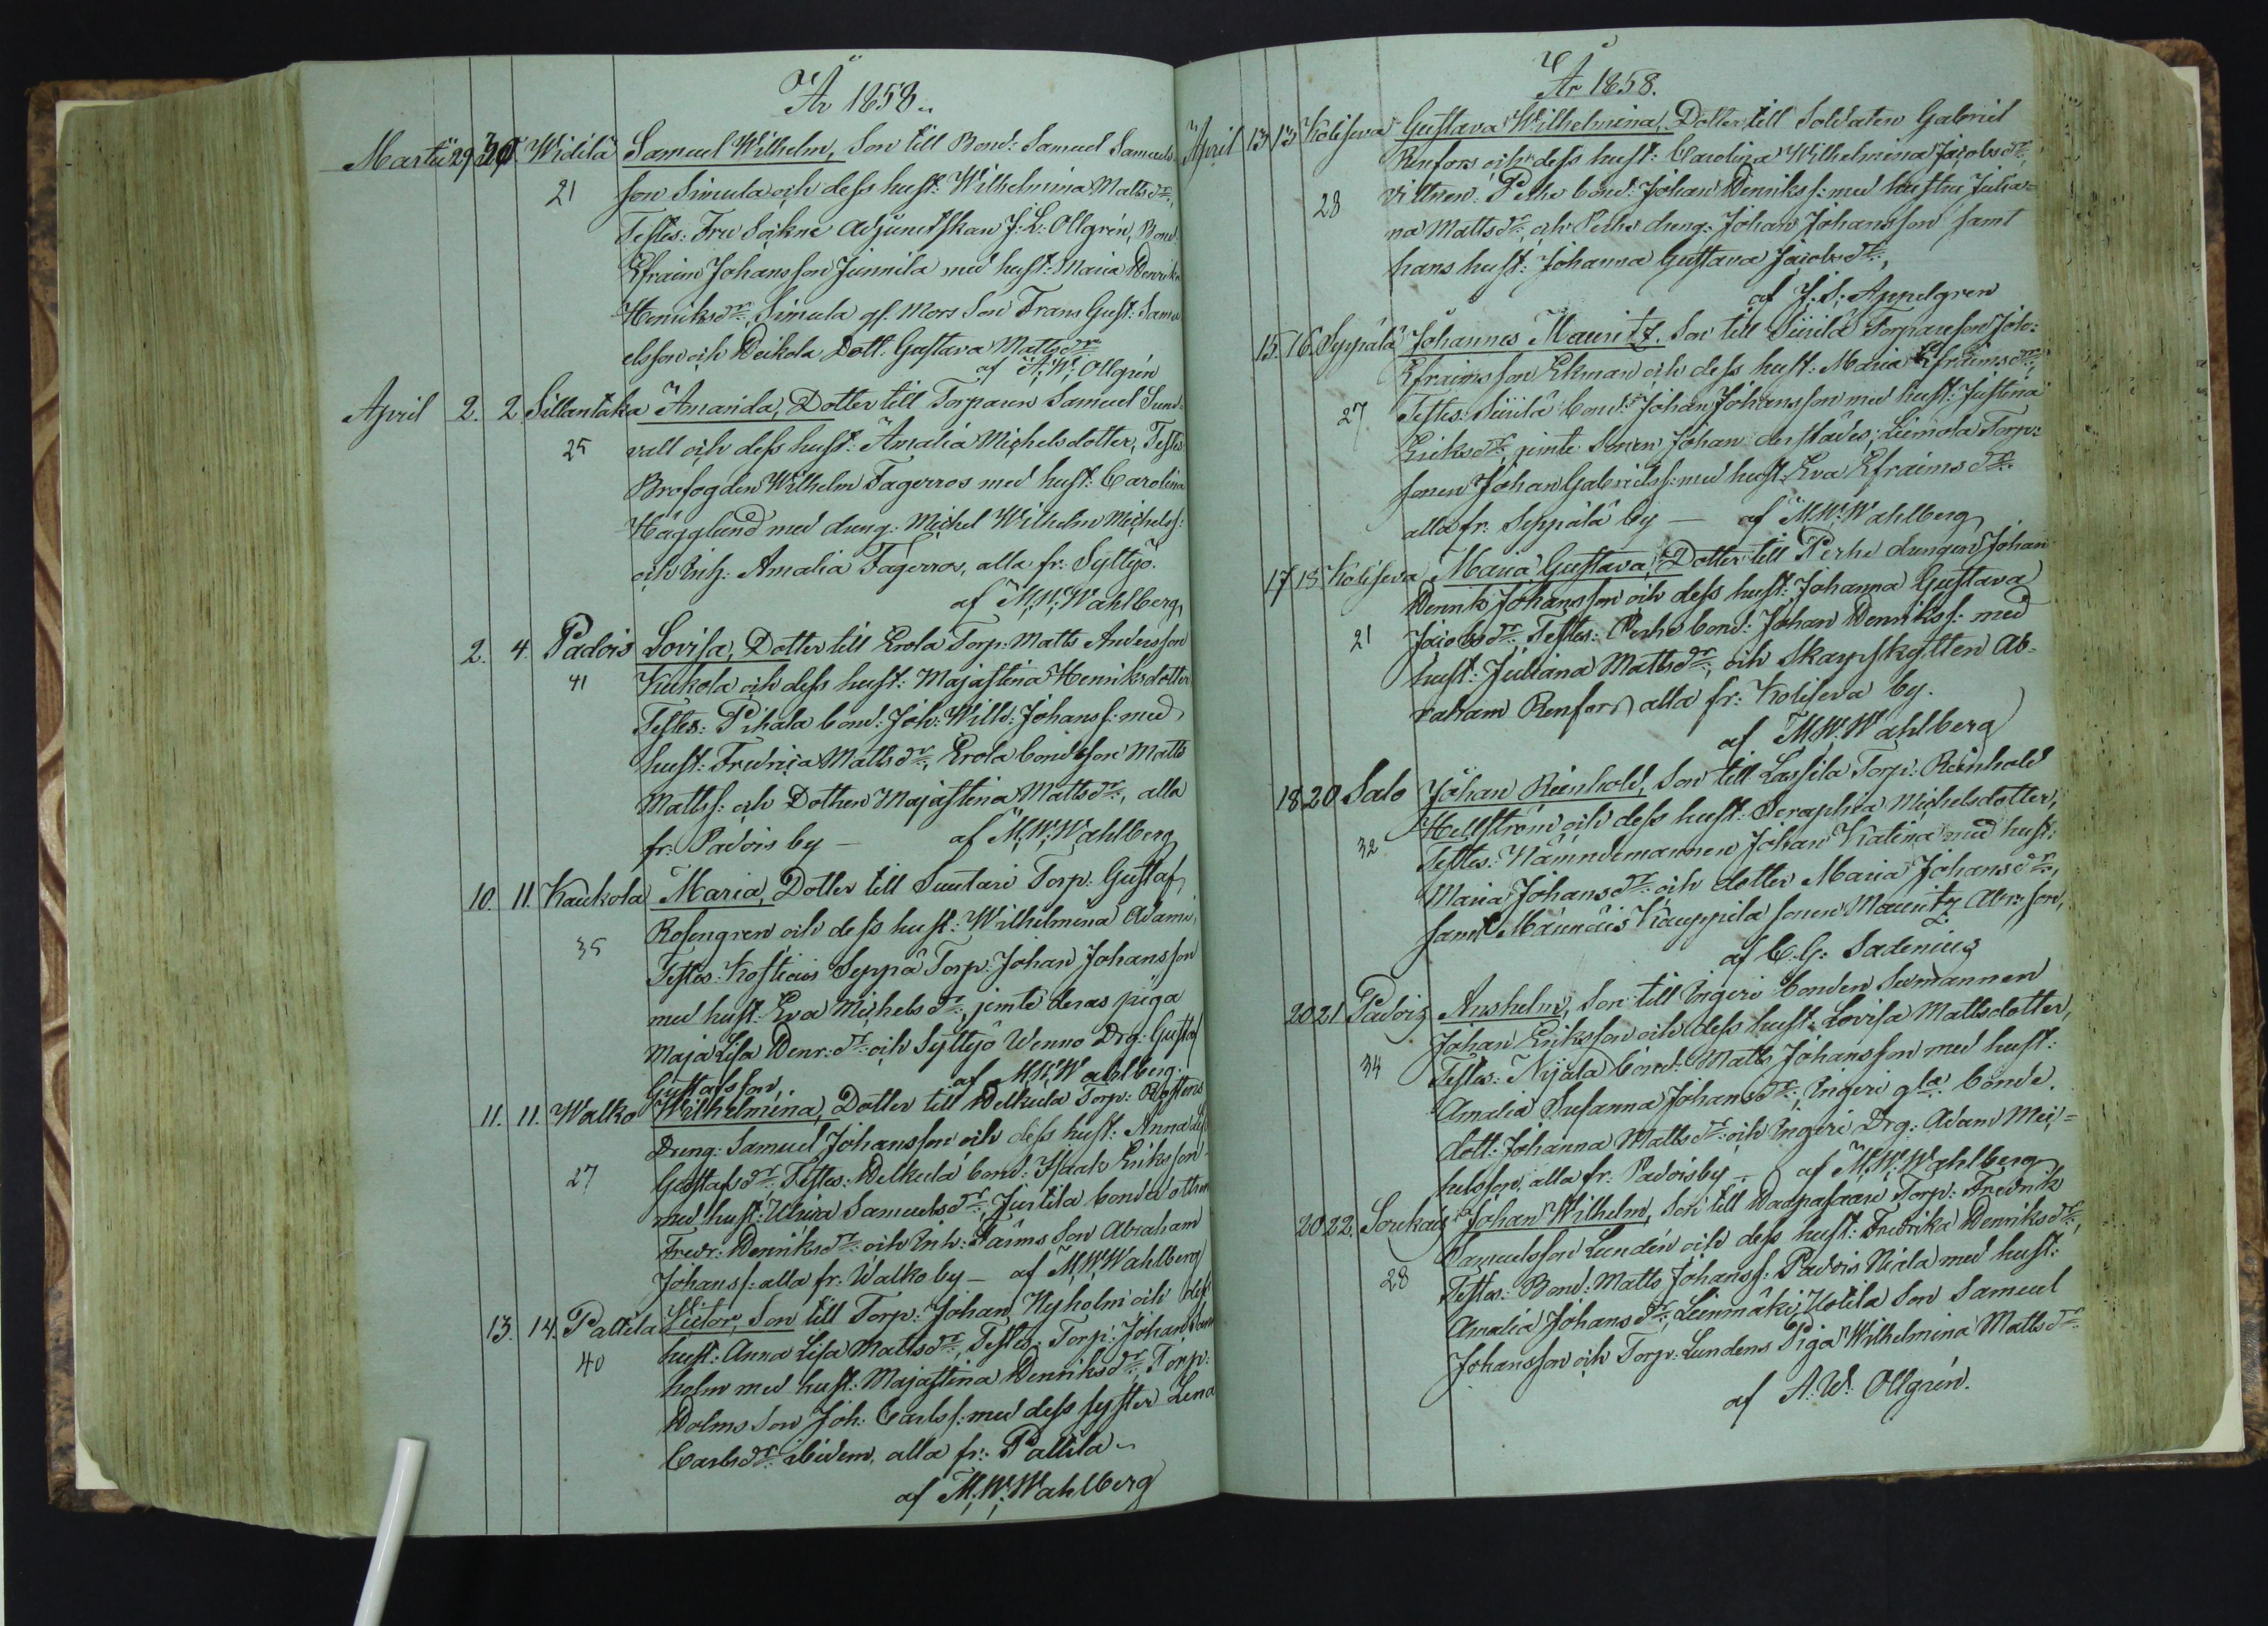 År 1858.
Martii 29 30 Widilä Samuel Wilhelm, Son till Bond: Samuel Samuels-
21 son Simula och dess hust: Wilhelmina Matts dr,
Testes: Fru Sockne Adjunctskan J: L: Ollgrén, Bond.
Efraim Johansson Junnila med hust: Maria
Henriks dr, Simula gl. Mors Son Frans Gust: Samu
elsson och Heikola Dott. Gustava Matts dr
af A: W: Ollgrén
April 2. 2. Sillantaka Amanda, Dotter till Torparen Samuel Sund-
25 vall och dess hust: Amalia Michelsdotter, Testes
Brofogden Wilhelm Fagerros med hust: Carolina
Hägglund med dreng. Michel Wilhelm Michelss:
och Inh: Amalia Fagerros, alla fr: Syttyö.
af M: W: Wahlberg
2. 4. Padois Lovisa, Dotter till Erola Torp: Matts Andersson
41 Kukola och dess hust: Majastina Henriksdotter
Testes: Pihala bond: Joh: Willh: Johanss: med
hust: Fredrica Matts dr, Erola bondeson Matts
Mattss: och Dottren Majastina Matts dr, alla
fr: Padois by — af M: W: Wahlberg
10. 11. Kaukola Maria, Dotter till Suutari Torp: Gustaf
35 Rosengren och dess hust: Wilhelmina Adams
Testes: Seppä Torp: Johan Johansson
med hust: Eva Michels dr, jemte deras piga
Maja Lisa Henr: dr och Syttyö Wenno Drg: Gustaf
Gustafsson, af M: W: Wahlberg.
11. 11. Walko Wilhelmina, Dotter till Helkula Torp:
Dreng: Samuel Johansson och dess hust: Anna Lis
27 Gustafs dr, Testes: Helkula bond: Isaak Eriksson
med hust: Ulrica Samuels dr, Juntila bondedottren
Fredr: Henriks dr och Inh: Son Abraham
Johanss: alla fr: Walko by — af M: W: Wahlberg
13. 14. Pallila Victor, Son till Torp: Johan Nyholm och dess
40 hust: Anna Lisa Matts dr, Testes: Torp: Johan
holm med hust: Majastina Henriks dr, Torp:
Holms Son Joh: Carlss: med dess syster Lena
Carls dr ibidem, alla fr: Pallila
af M: W: Wahlberg
År 1858.
April 13 13 Kolisewa Gustava Wilhelmina, Dotter till Soldaten Gabriel
Renfors och dess hust: Carolina Wilhelmina Jacobs dr,
28 Vittnen: Perhe bond: Johan Henrikss: med hustru Julia-
na Matts dr, och Perhe dreng: Johan Johansson samt
hans hust: Johanna Gustava Jacobs dr,
af J: S: Appelgren
15. 16. Seppälä Johannes Mauritz. Son till Siirilä Torparesson Joh:
Efraimsson Ekman och dess hust: Maria Efraims dr;
27 Testes: Siirilä bond: Johan Johansson med hust: Justina
Eriks dr, jemte Sonen Johan derstädes; Liimola Torp:
sonen Johan Gabrielss: med hust: Eva Efraims dr
alla fr: Seppälä by — af M: W: Wahlberg
17 18. Kolisewa Maria Gustava, Dotter till Perhe drengen Johan
Henrik Johansson och dess hust: Johanna Gustava
21 Jacobs dr, Testes: Perhe bond: Johan Henrikss: med
hust: Juliana Matts dr, och Skarpskytten Ab-
raham Renfors alla fr: Kolisewa by.
af M: W: Wahlberg
18 20 Salo Johan Reinhold, Son till Lassila Torp: Reinhold
Hellström och dess hust: Seraphia Michelsdotter,
32 Testes: Nämndemannen Johan Katina med hust:
Maria Johans dr och dotter Maria Johans dr,
samt Maunais Kauppila sonen Mauritz Abr:son,
af C. G: Sadenius
20 21 Padois Anshelm, Son till Ingeri bonden Sexmannen
Johan Eriksson och dess hust: Lovisa Mattsdotter,
34 Testes: Nijala bond: Matts Johansson med hust:
Amalia Susanna Johans dr, Ingeri gla bonde.
dott: Johanna Matts dr och Ingeri Drg: Adam Mic-
helsson, alla fr: Padois by. — af M: W: Wahlberg
20 22. Sorkais Johan Wilhelm, Son till Haapasaari Torp: Fredrik
Samuelsson Lundén och dess hust: Fredrika Henriks dr,
28 Testes: Bond: Matts Johanss: Padois Niala med hust:
Amalia Johans dr, Leinmäki Uotila Son Samuel
Johansson och Torp: Lundens Piga Wilhelmina Matts dr
af A: W: Ollgrén.